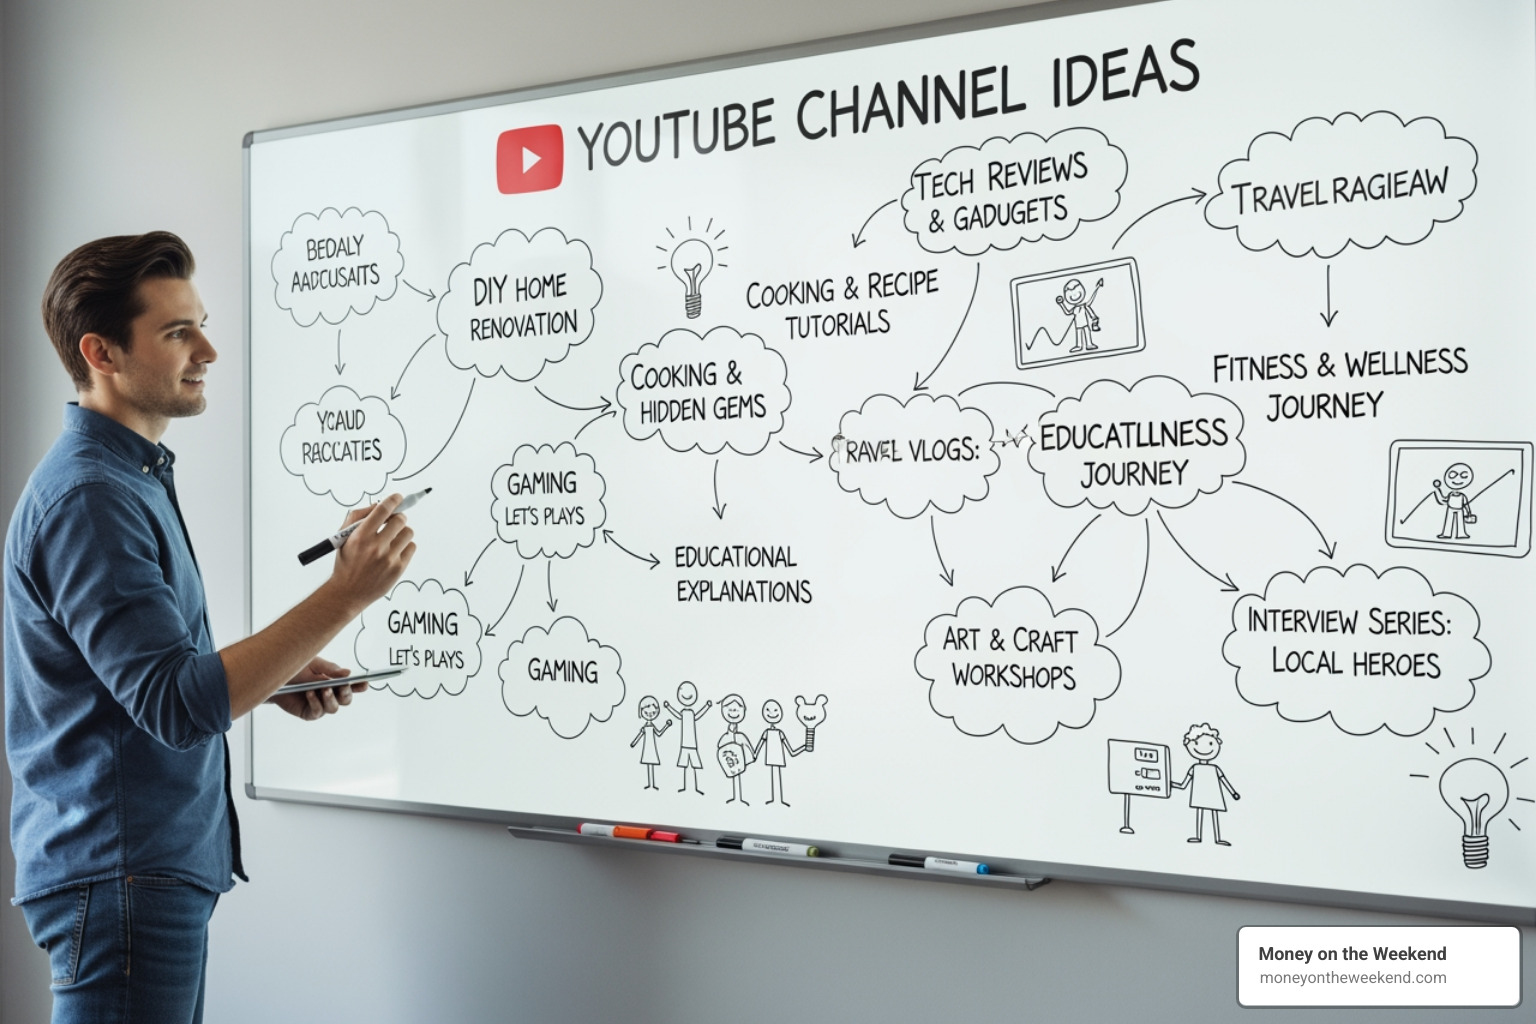 YOUTUBE CHANNEL IDEAS
TECH REVIEWS
& GADUGETS
TRAVELRAGIEAW
BEDALY
DIY HOME
RENOVATION
COOKING & RECIPE
TUTORIALS
FITNESS & WELLNESS
JOURNEY
COOKING &
HIDDEN GEMS
YCAUD
RACCATIES
GAMING
LET'S PLAYS
RAVEL VLOGS:
EDUCATLLNESS
JOURNEY
EDUCATIONAL
EXPLANATIONS
GAMING
LET'S PLAYS
GAMING
ART & CRAFT
WORKSHOPS
INTERVIEW SERIES:
LOCAL HEROES
Money on the Weekend
moneyontheweekend.com